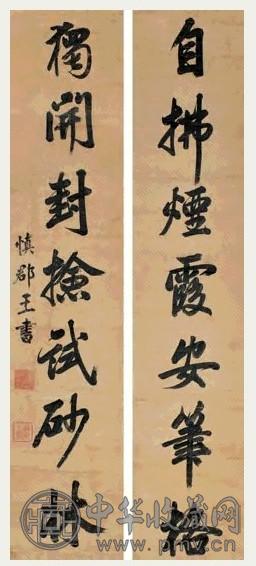 自拂煙霞安筆格
獨開封檢試砂牀
慎郡王書
中华收藏网